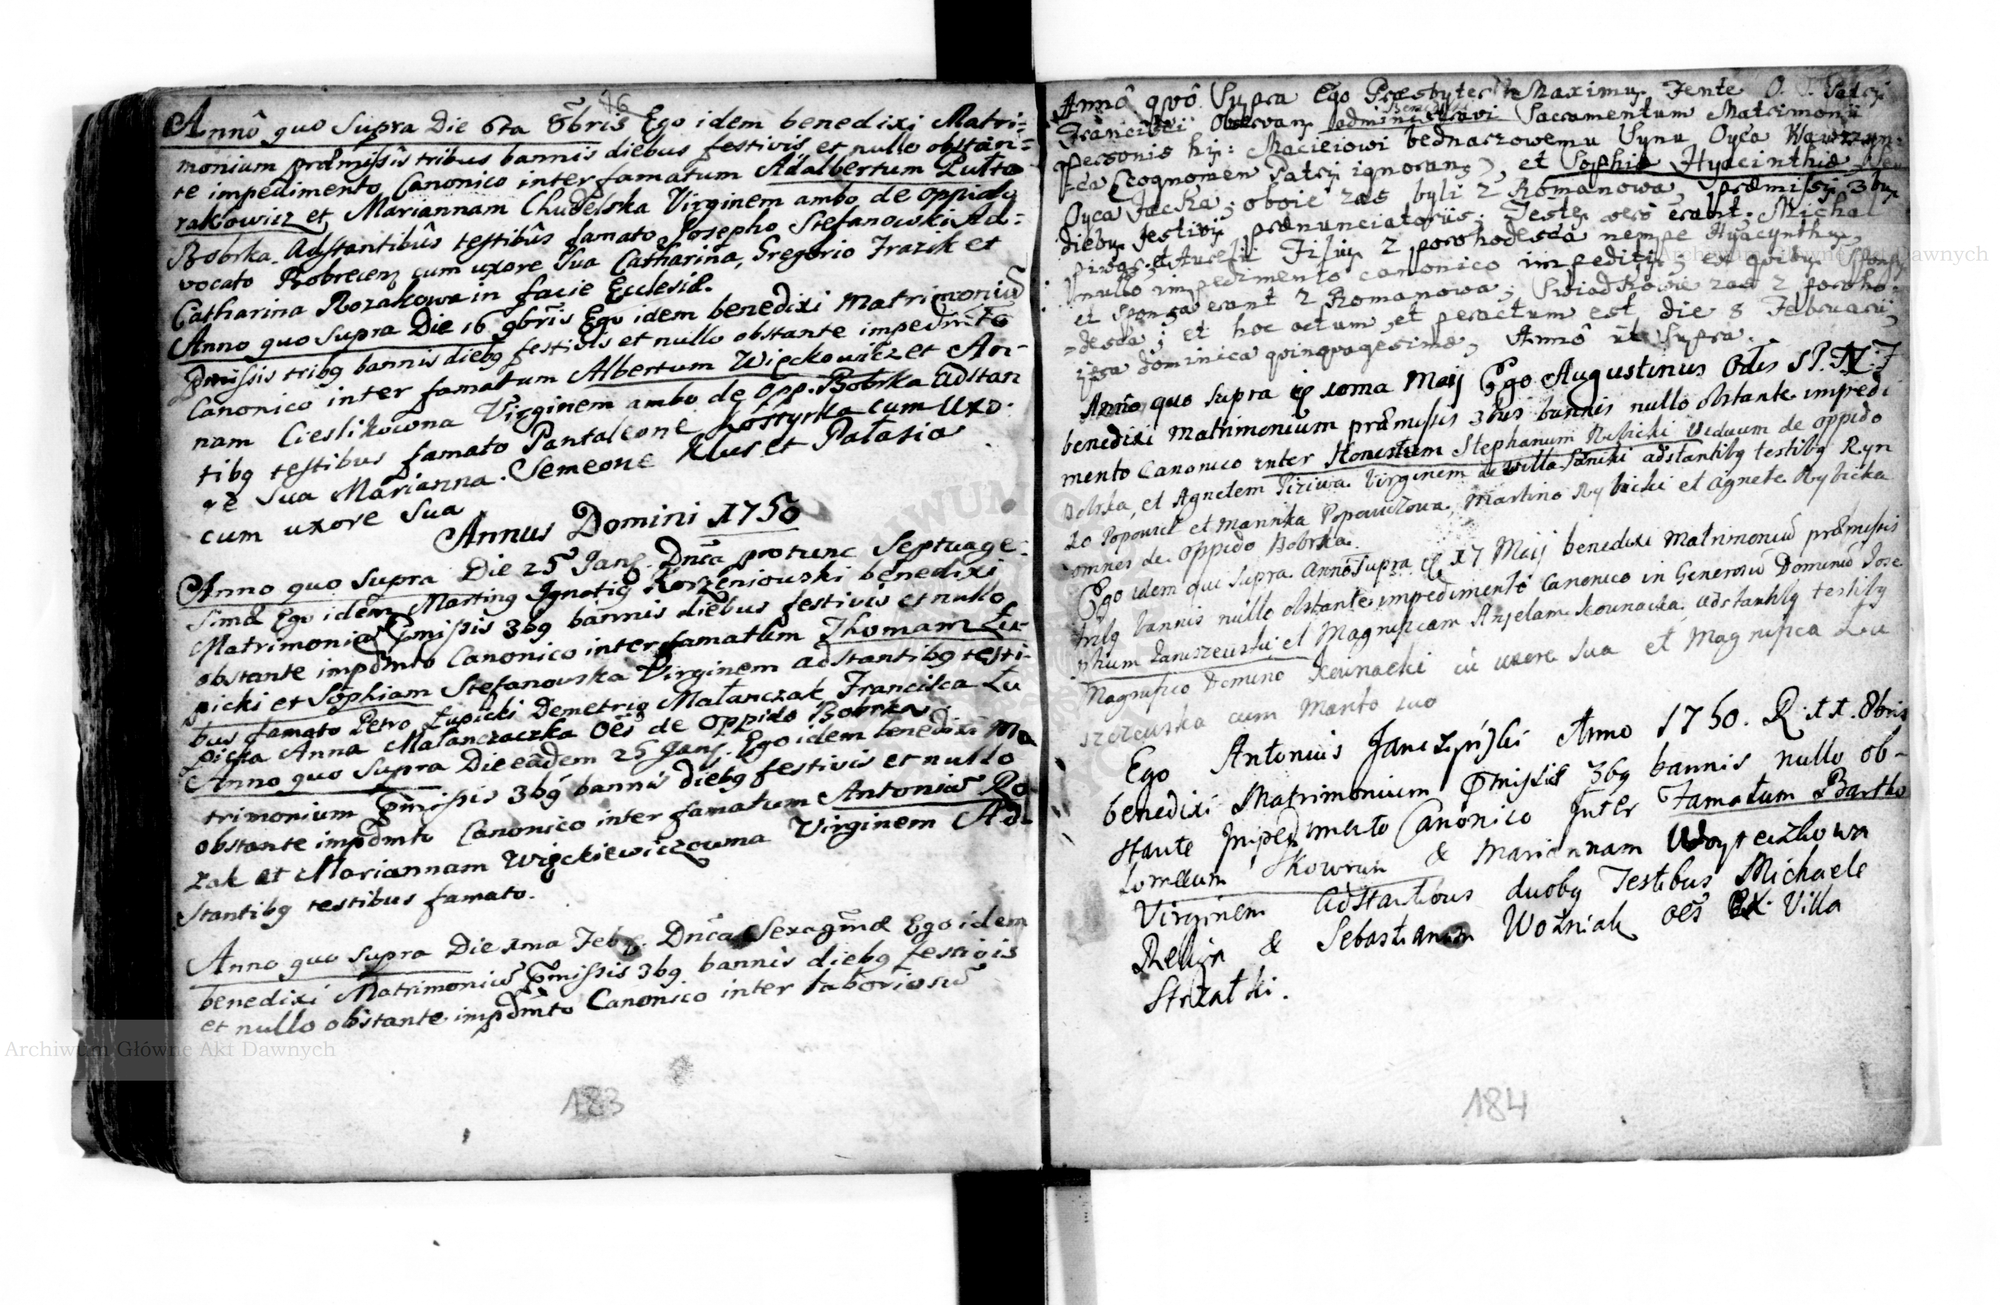 Annô quo Supra Die 6ta 8bris Ego idem benedixi Matri-
16
monium præmissis tribus bannis diebus festivis et nullo obstan-
te impedimento Canonico inter famatum Adalbertum Putto
rakowicz et Mariannam Chudelska Virginem ambo de oppido
Bobrka. Adstantibûs testibûs famato Josepho Stefanowski Ad-
vocato Robrecen cum uxore sua Catharina, Gregorio Frazik et
Catharina Rozakowa in facie Ecclesiæ.
Anno quo Supra Die 16 9bris Ego idem benedixi Matrimoniũ
præmissis tribg bannis diebg festivis et nullo obstante impedmto
Canonico inter famatum Albertum Więckowicz et An-
nam Cieslikowna Virginem ambo de Opp. Bobrka adstan
tibg testibus famato Pantaleone Kostyrka cum Uxo-
re Sua Marianna. Semeone Klus et Patasia
cum uxore Sua
Annus Domini 1750
Anno quo Supra Die 25 Jan. Dnca protunc Septuage-
simæ Ego idem Marting Ignatig Korzeniowski benedixi
Matrimoniũ præmissis 3bg bannis diebus festivis et nullo
obstante impdmto Canonico inter famatum Thomam Łu-
picki et Sophiam Stefanowska Virginem adstantibg testi-
bus famato Petro Łupicki Demetrio Małanczak Francisca Łu
picka Anna Małanczaczka Oēs de Oppido Bobrka.
Anno quo Supra Die eadem 25 Jan. Ego idem benedixi Ma
trimonium præmissis 3bg bannis diebg festivis et nullo
obstante impdmto Canonico inter famatum Antoniũ Ro
zak et Mariannam Więckiewiczowna Virginem Ad-
stantibg testibus famato.
Anno quo Supra Die 1ma Feb. Dnca Sexagmæ Ego idem
benedixi Matrimoniũ præmissis 3bg bannis diebg festivis
et nullo obstante impdmto Canonico inter laboriosũ
183
Annô quô Supra Ego Præsbyter Maximus Fente O. S. Patris
Francisci Obsevan administravi Sacramentum Matrimonii
Benedixi
personis his: Macieiowi bednarzowemu Synu Oyca Wawrzyn-
ca (cognomen Patris ignorans), et Sophiæ Hyacinthiæ
Oyca Jacka; oboie zas byli z Romanowa, præmissis 3bus
diebus festivis prænunciatoriis; Testes vero erant: Michal
pirog, et Aurelii Filius z porohodesca nempe Hyacynthus,
nullo impedimento canonico impeditis; ex quibus Sponsus
et Sponsa erant z Romanowa; Swiadkowie zas z poroho-
desca; et hoc actum et peractum est die 8 Februarii,
ipsa dominica quinquagesima, Annô ut Supra.
Anno quo supra 10ma Maij Ego Augustinus Odis SP. N. F
benedixi Matrimonium præmissis 3bus bannis nullo obstante impedi
mento Canonico inter Honestum Stephanum Rybicki Viduum de oppido
Bobrka, et Agnetem Piziwa Virginem de villa Sanicki adstantibg testibg Ryn
ko Popowicz et Mannka Popowiczowa Martino Rybicki et Agnete Rybicka
omnes de Oppido Bobrka.
Ego idem qui supra Anno supra 17 Maij benedixi Matrimoniũ præmissis
tribg bannis nullo obstante impedimento Canonico in Generosũ Dominũ Jose
phum Januszewski et Magnificam Anjelam Kownacka adstantibg testibg
Magnifico Domino Kownacki cũ uxore Sua et Magnifica Lu
szczewska cum Marito suo
Ego Antonius Janczynski Anno 1750. 11. 8bris
benedixi Matrimonium præmissis 3bg bannis nullo ob-
stante Impedimento Canonico Inter Famatum Bartho
lomeum Skowrun & Mariannam Woyteczkowa
Virginem Adstantibus duobg Testibus Michaele
& Sebastianum Woźniak oēs Ex Villa
Strzałki.
184
Archiwum Główne Akt Dawnych
Archiwum Główne Akt Dawnych